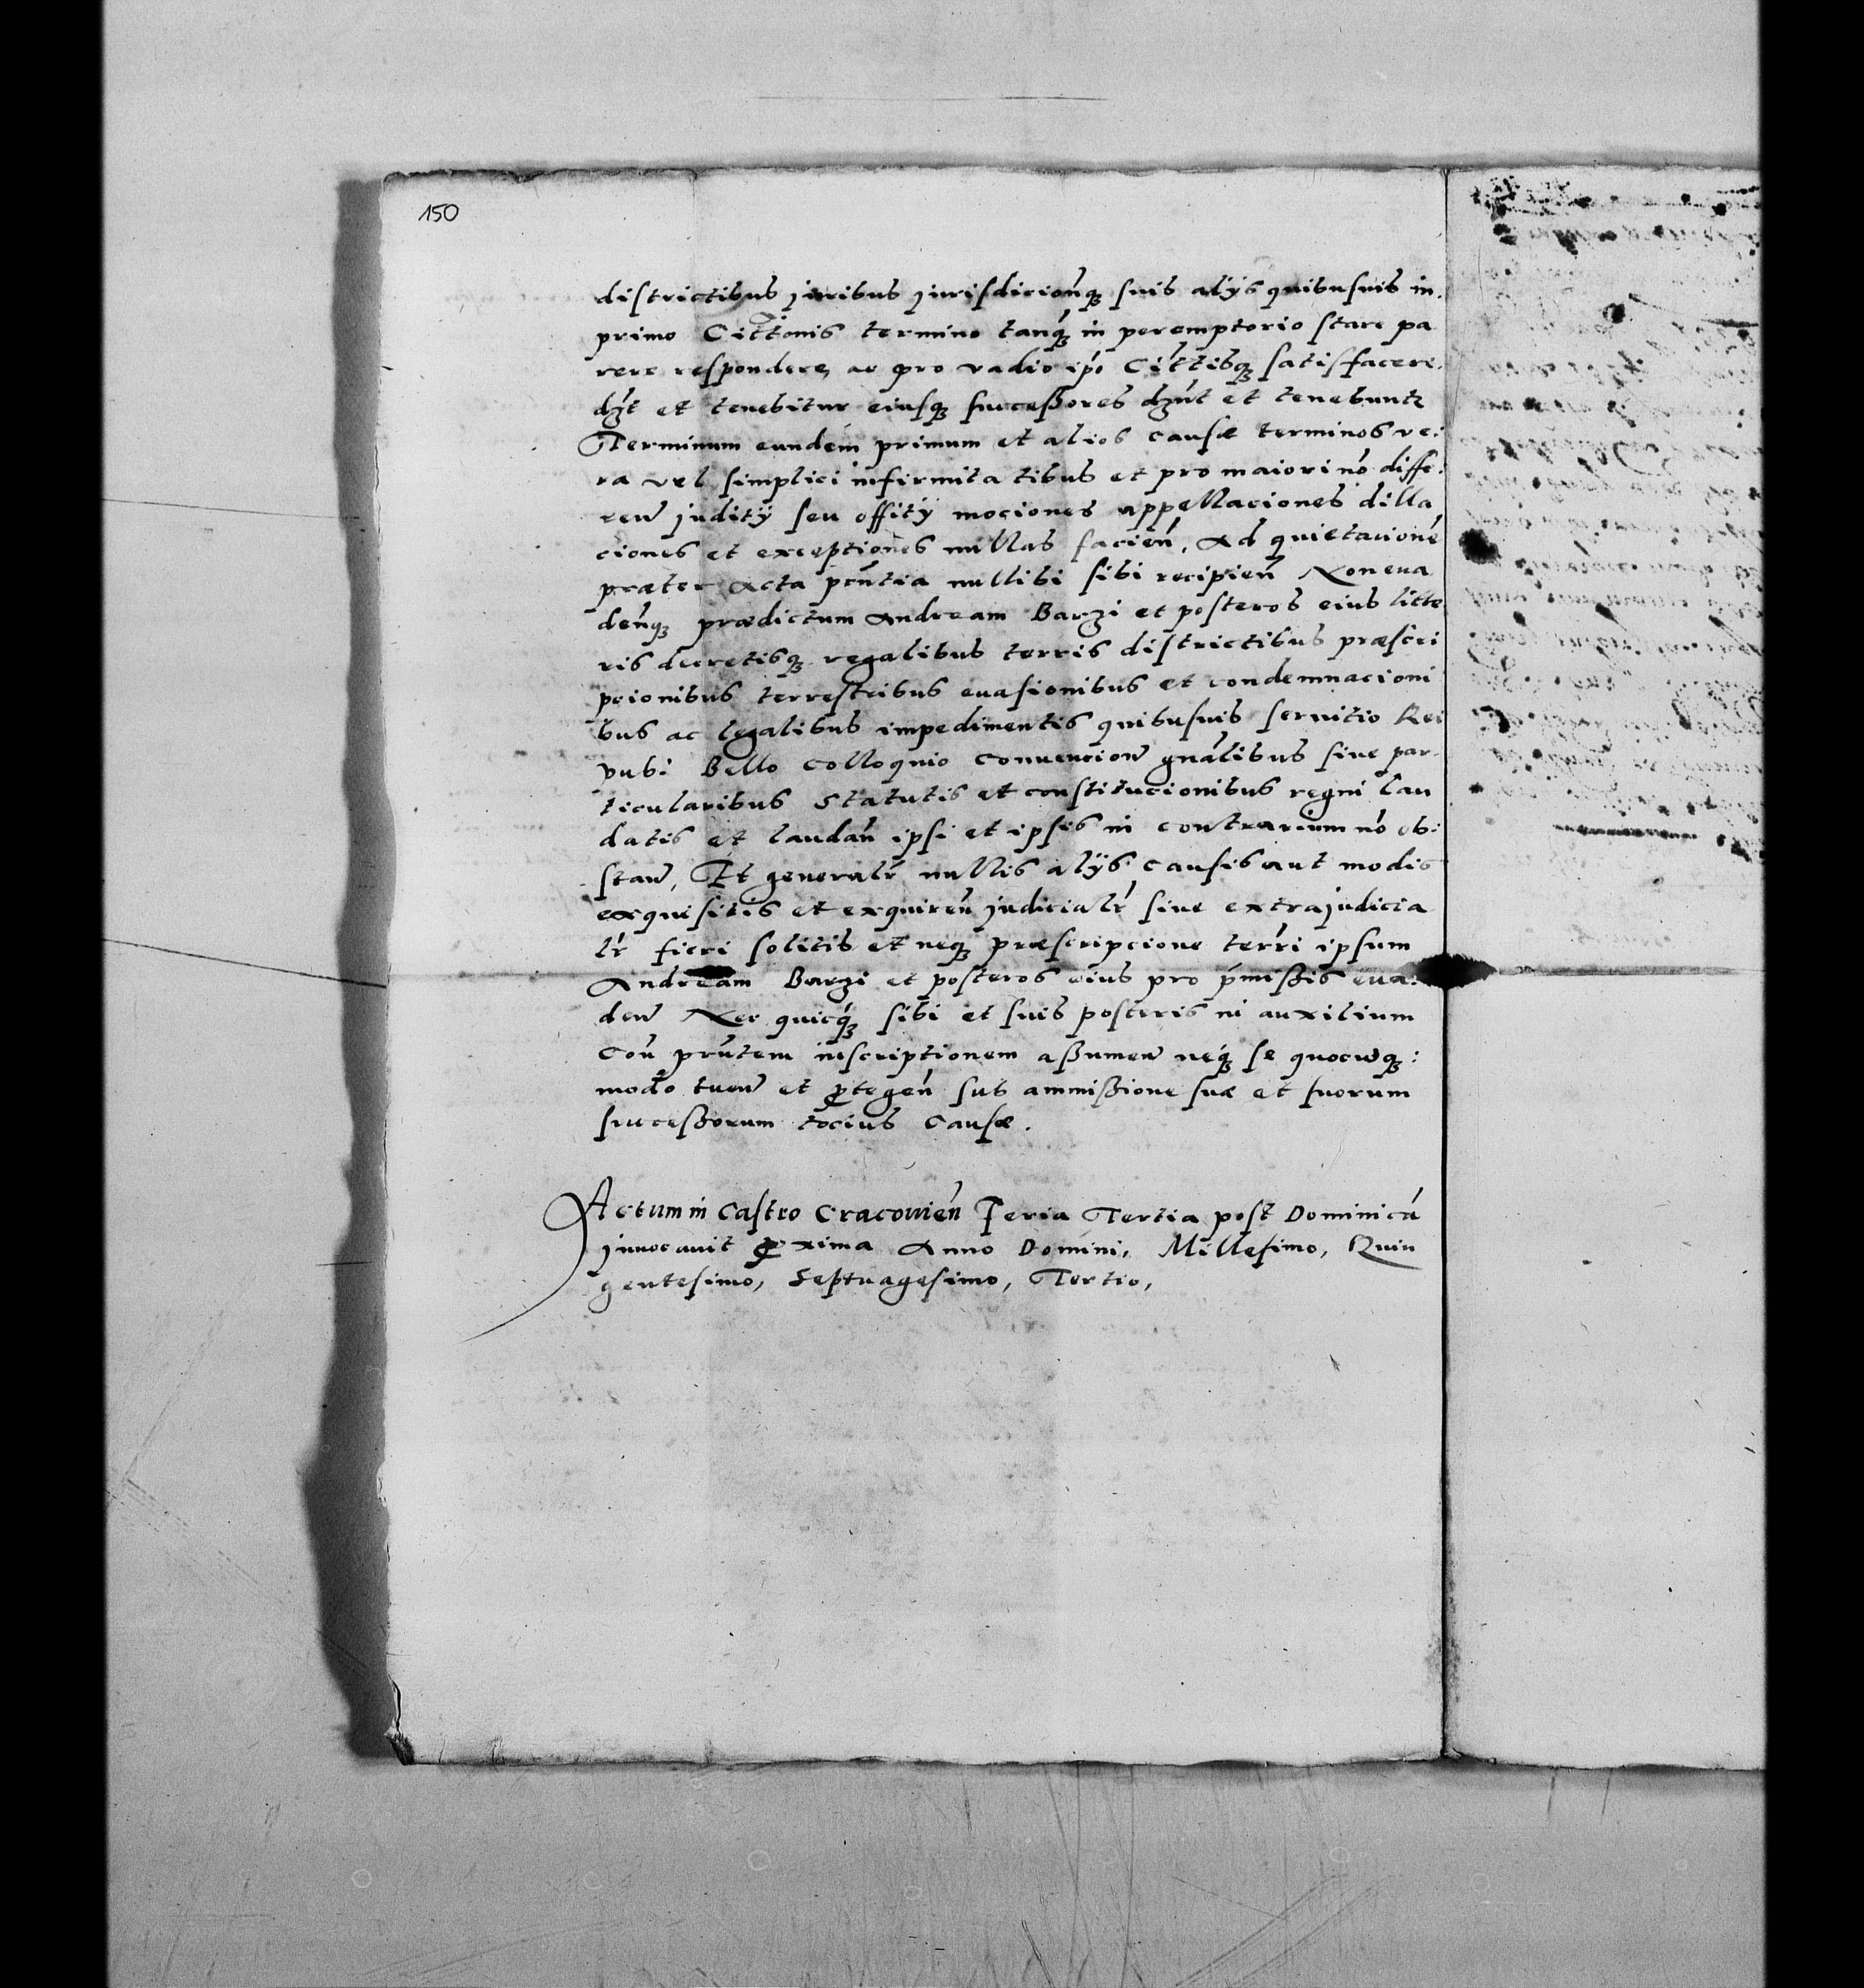 150
districtibus juribus jurisdicionq₃ suis alijs quibusuis in.
primo Cittonis termino tanq́₃ in peremptorio stare pa
rere respondere, ac pro vadio ipó Cíttisq₃ satisfacere.
dz̃t et tenebitur eiusq₃ successores dz̃nt et tenebuntz
Terminum eundem primum et alios causæ terminos ve:
ra vel simplici infirmita tibus et pro maiori nó diffe:
ren̄ juditÿ seu offitÿ mociones appellaciones dilla
ciones et exceptiones nullas facień, Ad quietacioné
præter Acta prńtia nullibi sibi recipień Non eua
deńq₃ prædictum Andream Barzi et posteros eius litte
ris decretisq₃ regalibus terris districtibus præscri
pcionibus terrestribus euasionibus et condemnacioni
bus ac legalibus impedimentis quibusuis seruitio Rei
pub: Bello Colloquio Conuencion̄ gnálibus siue par-
ticularibus Statutis et constitucionibus regni lau
datis et laudań ipsi et ipsis in contrarium nó ob:
stan̄, Et generalr̃ nullis alÿs causis aut modis
exquisitis et exquireń judicialr̃ siue extrajudicia
lr̃ fieri solitis et neq₃ præscripcione terŕi ipsum
Andream Barzi et posteros eius pro ṕmissis eua:
den̄ Nec quicq́₃ sibi et suis posteris in auxilium
Coń prńtem inscriptionem assumen̄ neq́₃ se quocunq₃:
modo tuen̄ et ꝓtegeń sub ammissione suæ et suorum
successorum tocius Causæ.
Actum in Castro Cracouień Feria Tertia post Dominicá
jnuocauit ꝓxima Anno Domini, Millesimo, Quin
gentesimo, Septuagesimo, Tertio,